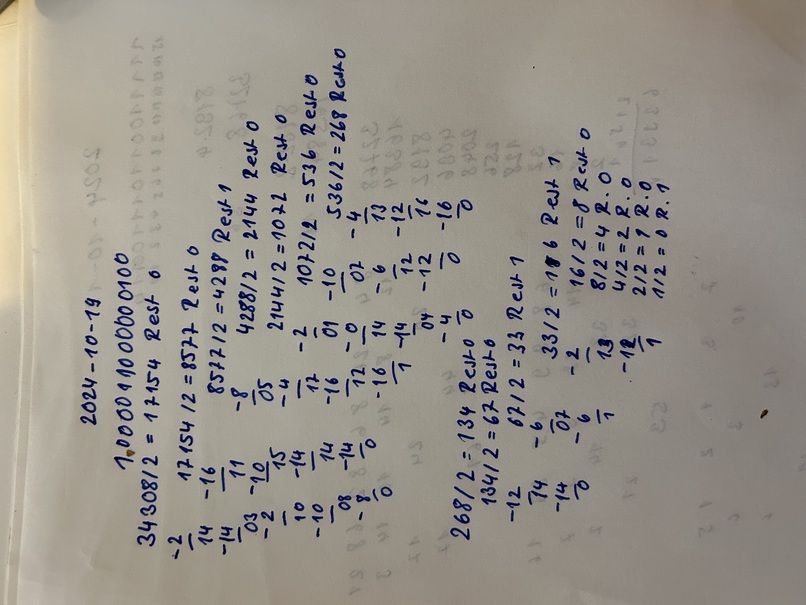 2024-10-19
1000011000000100
34308/2 = 17154 Rest 0
-2 17154/2=8577 Rest 0
14 -16 8577/2=4288 Rest 1
-14 11 -8 4288/2=2144 Rest 0
03 -10 05 2144/2=1072 Rest 0
-2 15 -4 -2 1072/2 = 536 Rest 0
10 -14 17 01 -10 536/2=268 Rest 0
-10 14 -16 -0 07 -4
08 -14 12 14 -6 13
-8 0 -16 -14 12 -12
0 1 04 -12 16
-4 0 -16
0 0
268/2=134 Rest 0
134/2=67 Rest 0
-12 67/2=33 Rest 1
14 -6 33/2=16 Rest 1
-14 07 -2 16/2=8 Rest 0
0 -6 13 8/2=4 R. 0
1 -12 4/2=2 R. 0
1 2/2=1 R.0
1/2=0 R.1